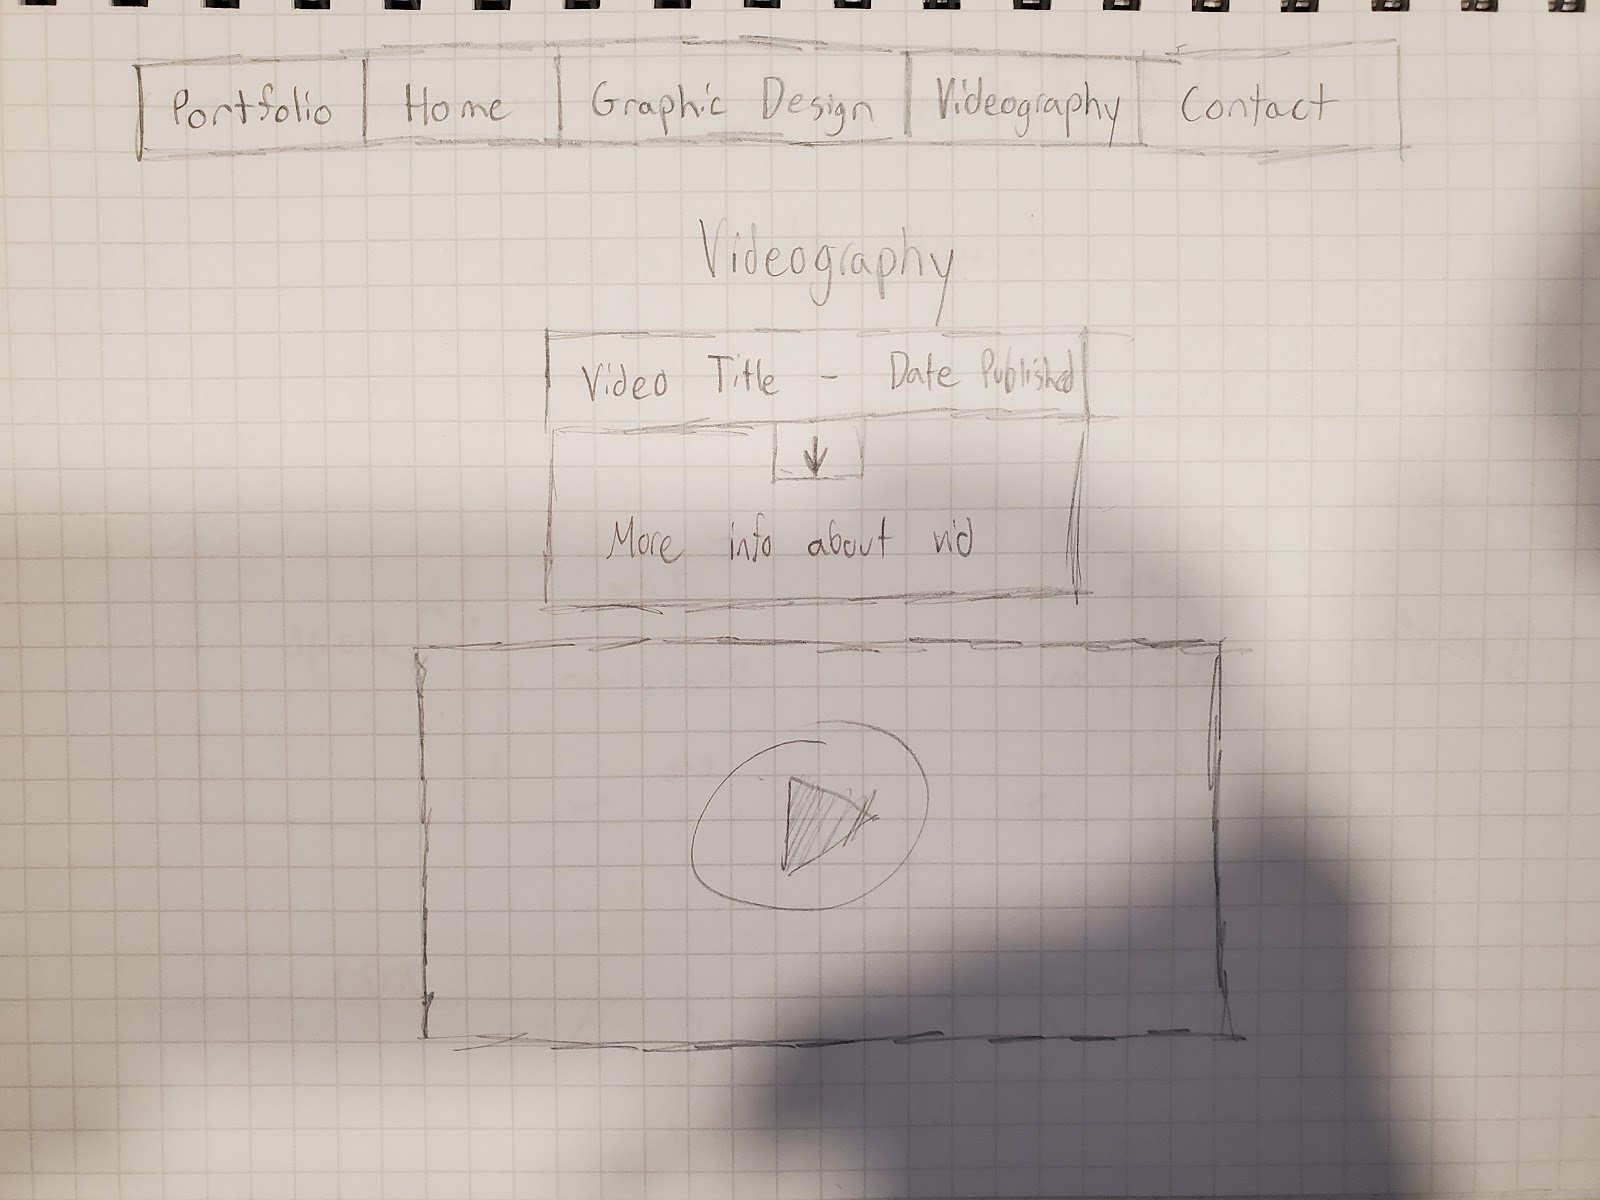 Portfolio Home Graphic Design Videography Contact
Videography
Video Title - Date Published
More info about vid